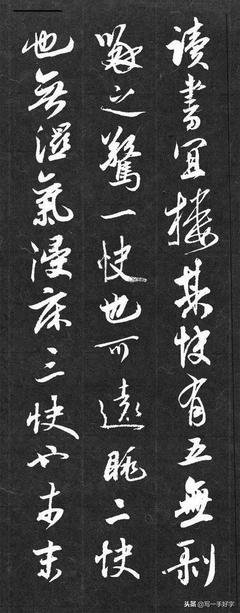 讀書宜樓其快有五無剥
啄之驚一快也可遠眺二快
也無濕氣浸床三快也木末
头条 @写一手好字